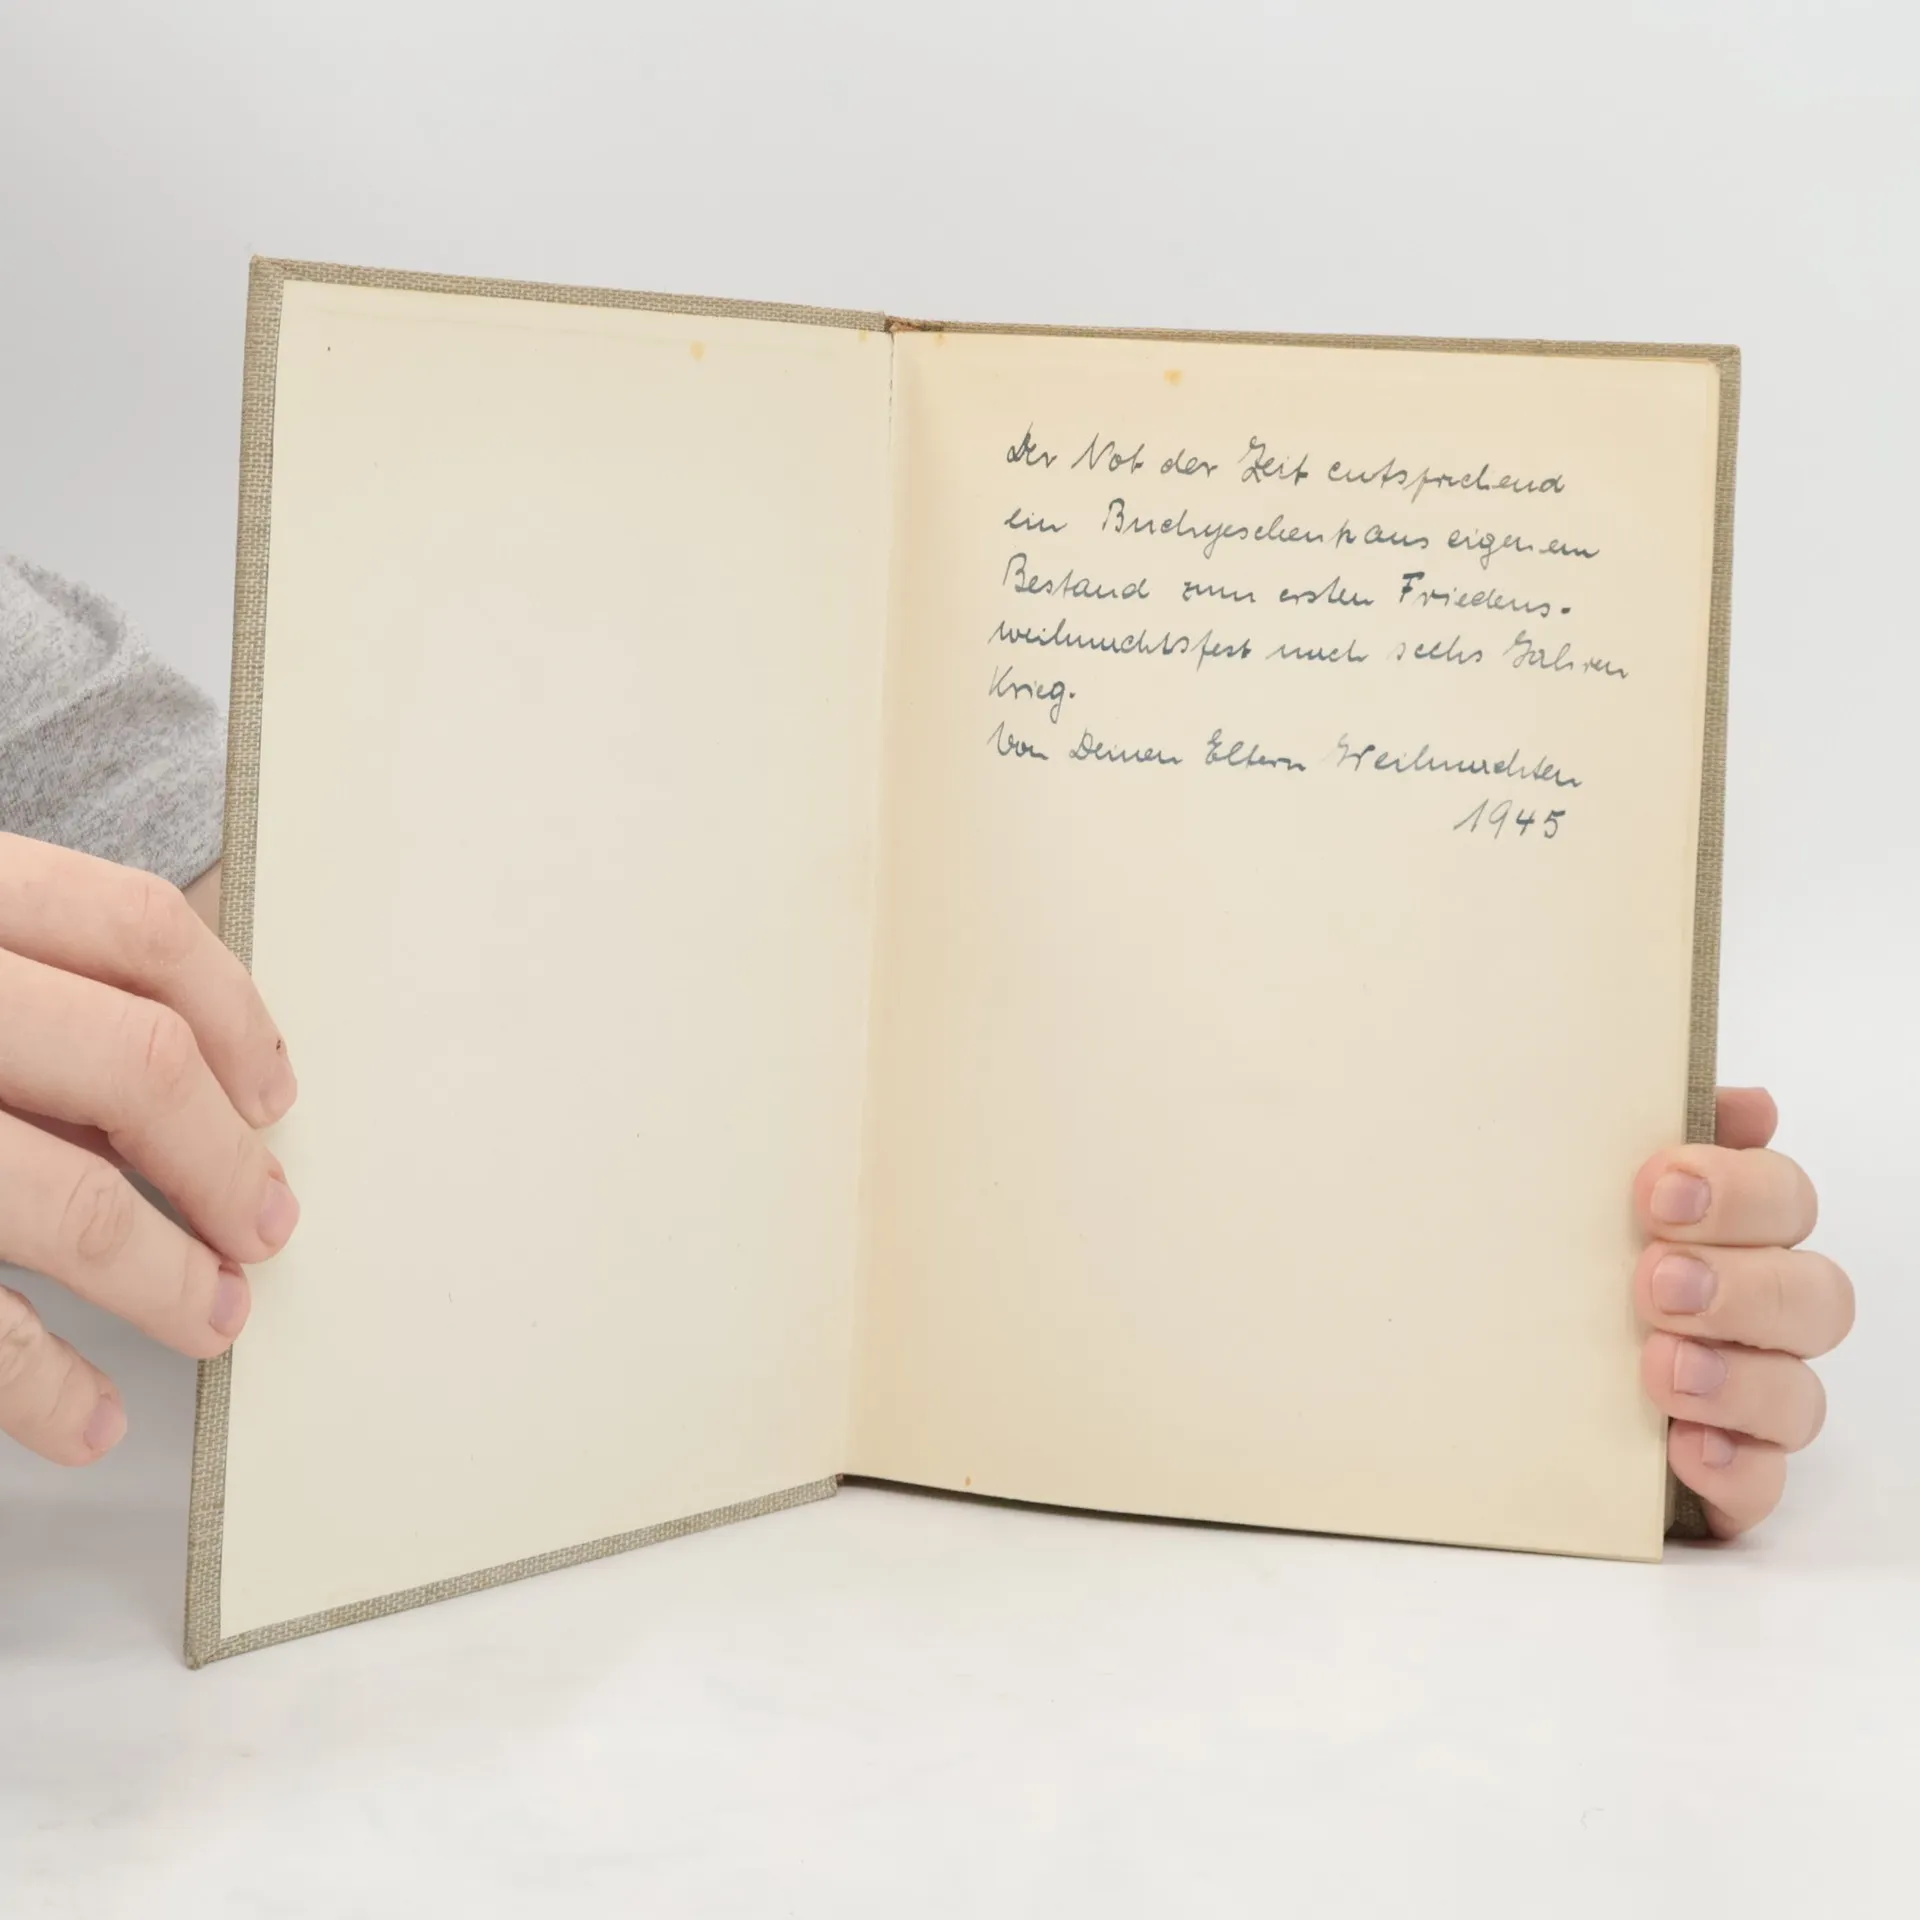 Der Not der Zeit entsprechend
ein Buchgeschenk aus eigenem
Bestand zum ersten Friedens-
weihnachtsfest nach sechs Jahren
Krieg.
Von Deinen Eltern Weihnachten
1945